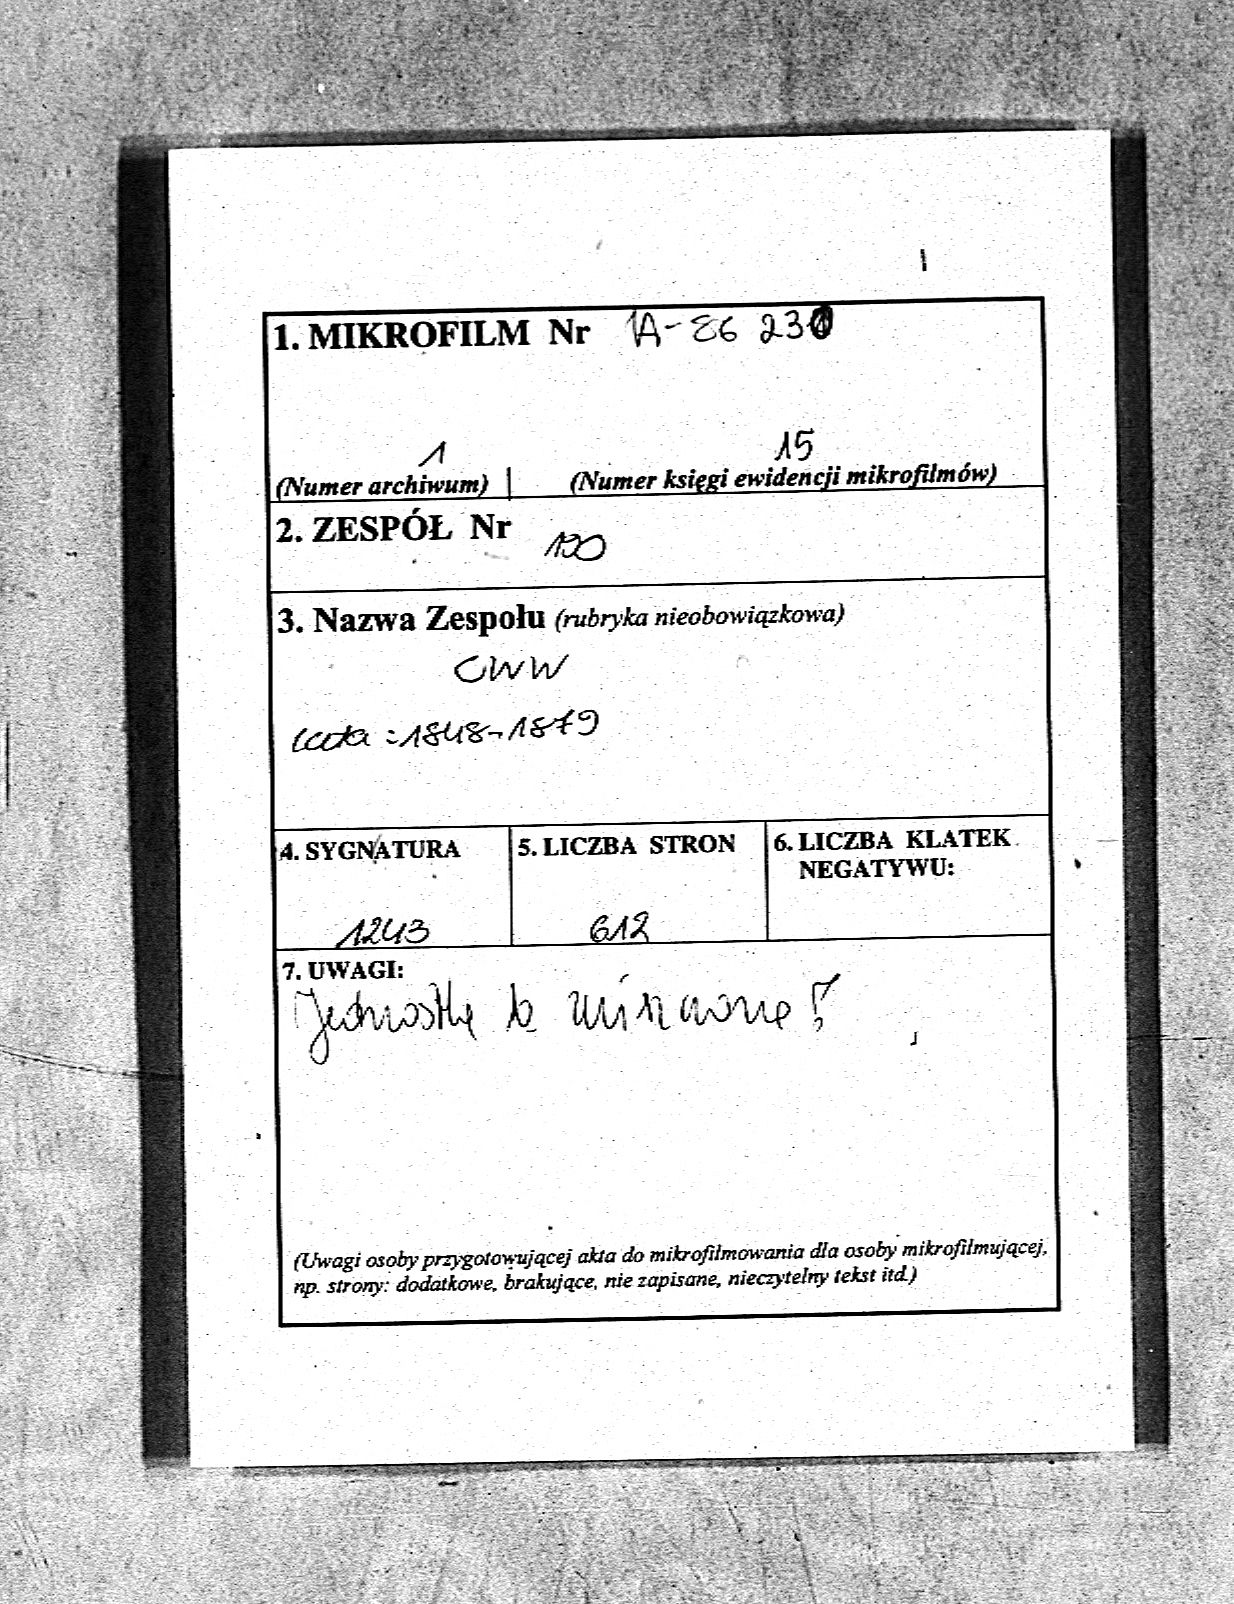 1. MIKROFILM Nr 1A-E6 23
1 15
(Numer archiwum) (Numer księgi ewidencji mikrofilmów)
2. ZESPÓŁ Nr 190
3. Nazwa Zespołu (rubryka nieobowiązkowa)
CWW
lata :1848-1879
4. SYGNATURA 5. LICZBA STRON 6. LICZBA KLATEK
NEGATYWU:
1243 612
7. UWAGI:
!
(Uwagi osoby przygotowującej akta do mikrofilmowania dla osoby mikrofilmującej,
np. strony: dodatkowe, brakujące, nie zapisane, nieczytelny tekst itd.)